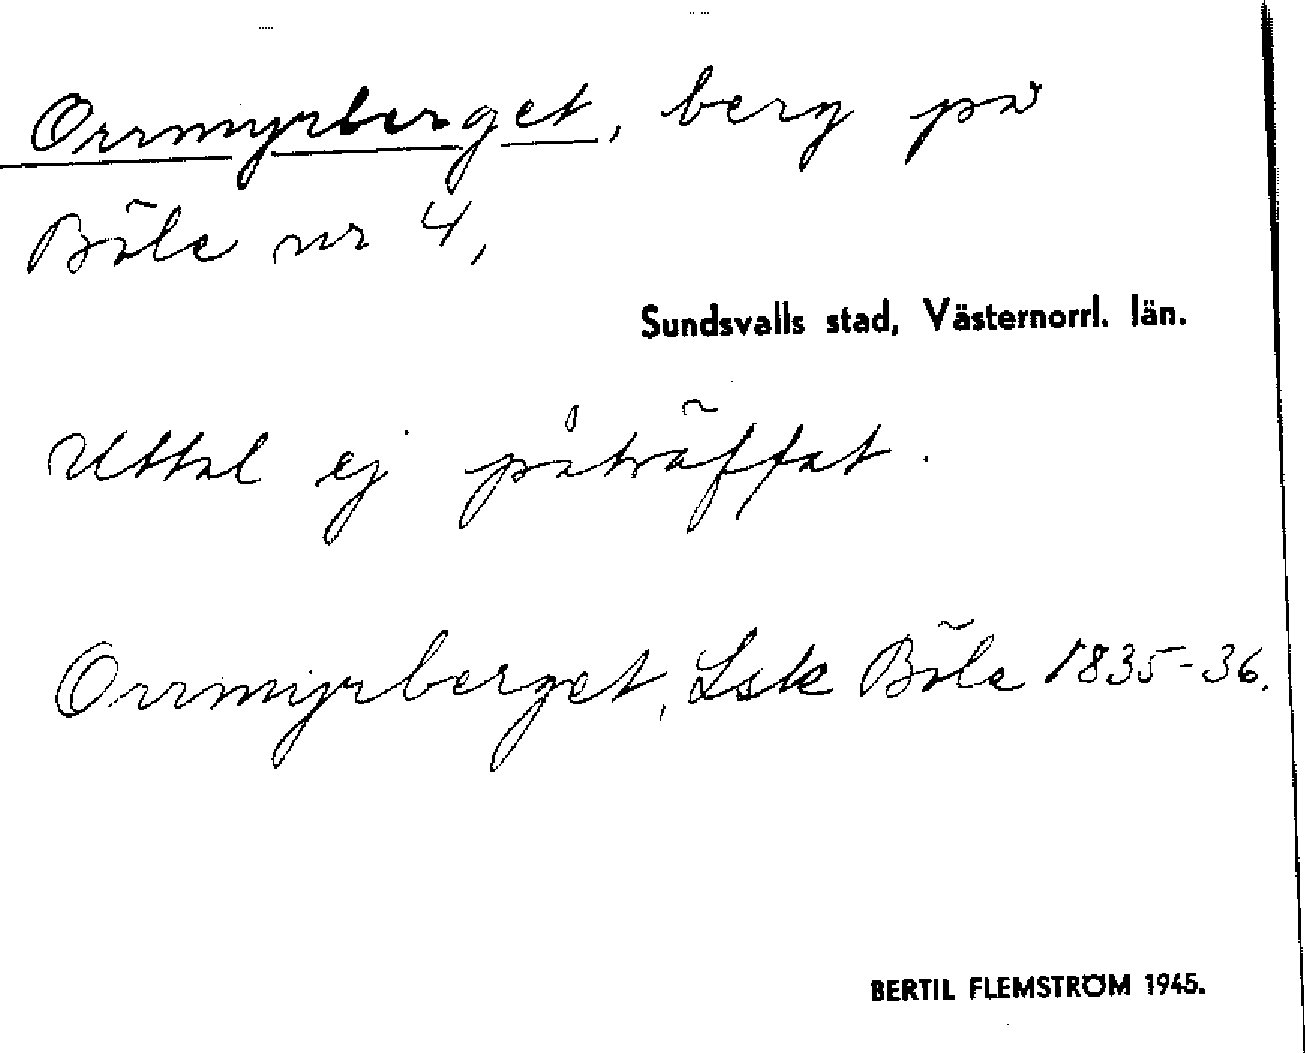 Orrmyrberget, berg på
Böle nr 4,
Sundsvalls stad, Västernorrl. län.
Uttal ej påträffat.
Orrmyrberget, Lsk Böle 1835-36.
BERTIL FLEMSTRÖM 1945.